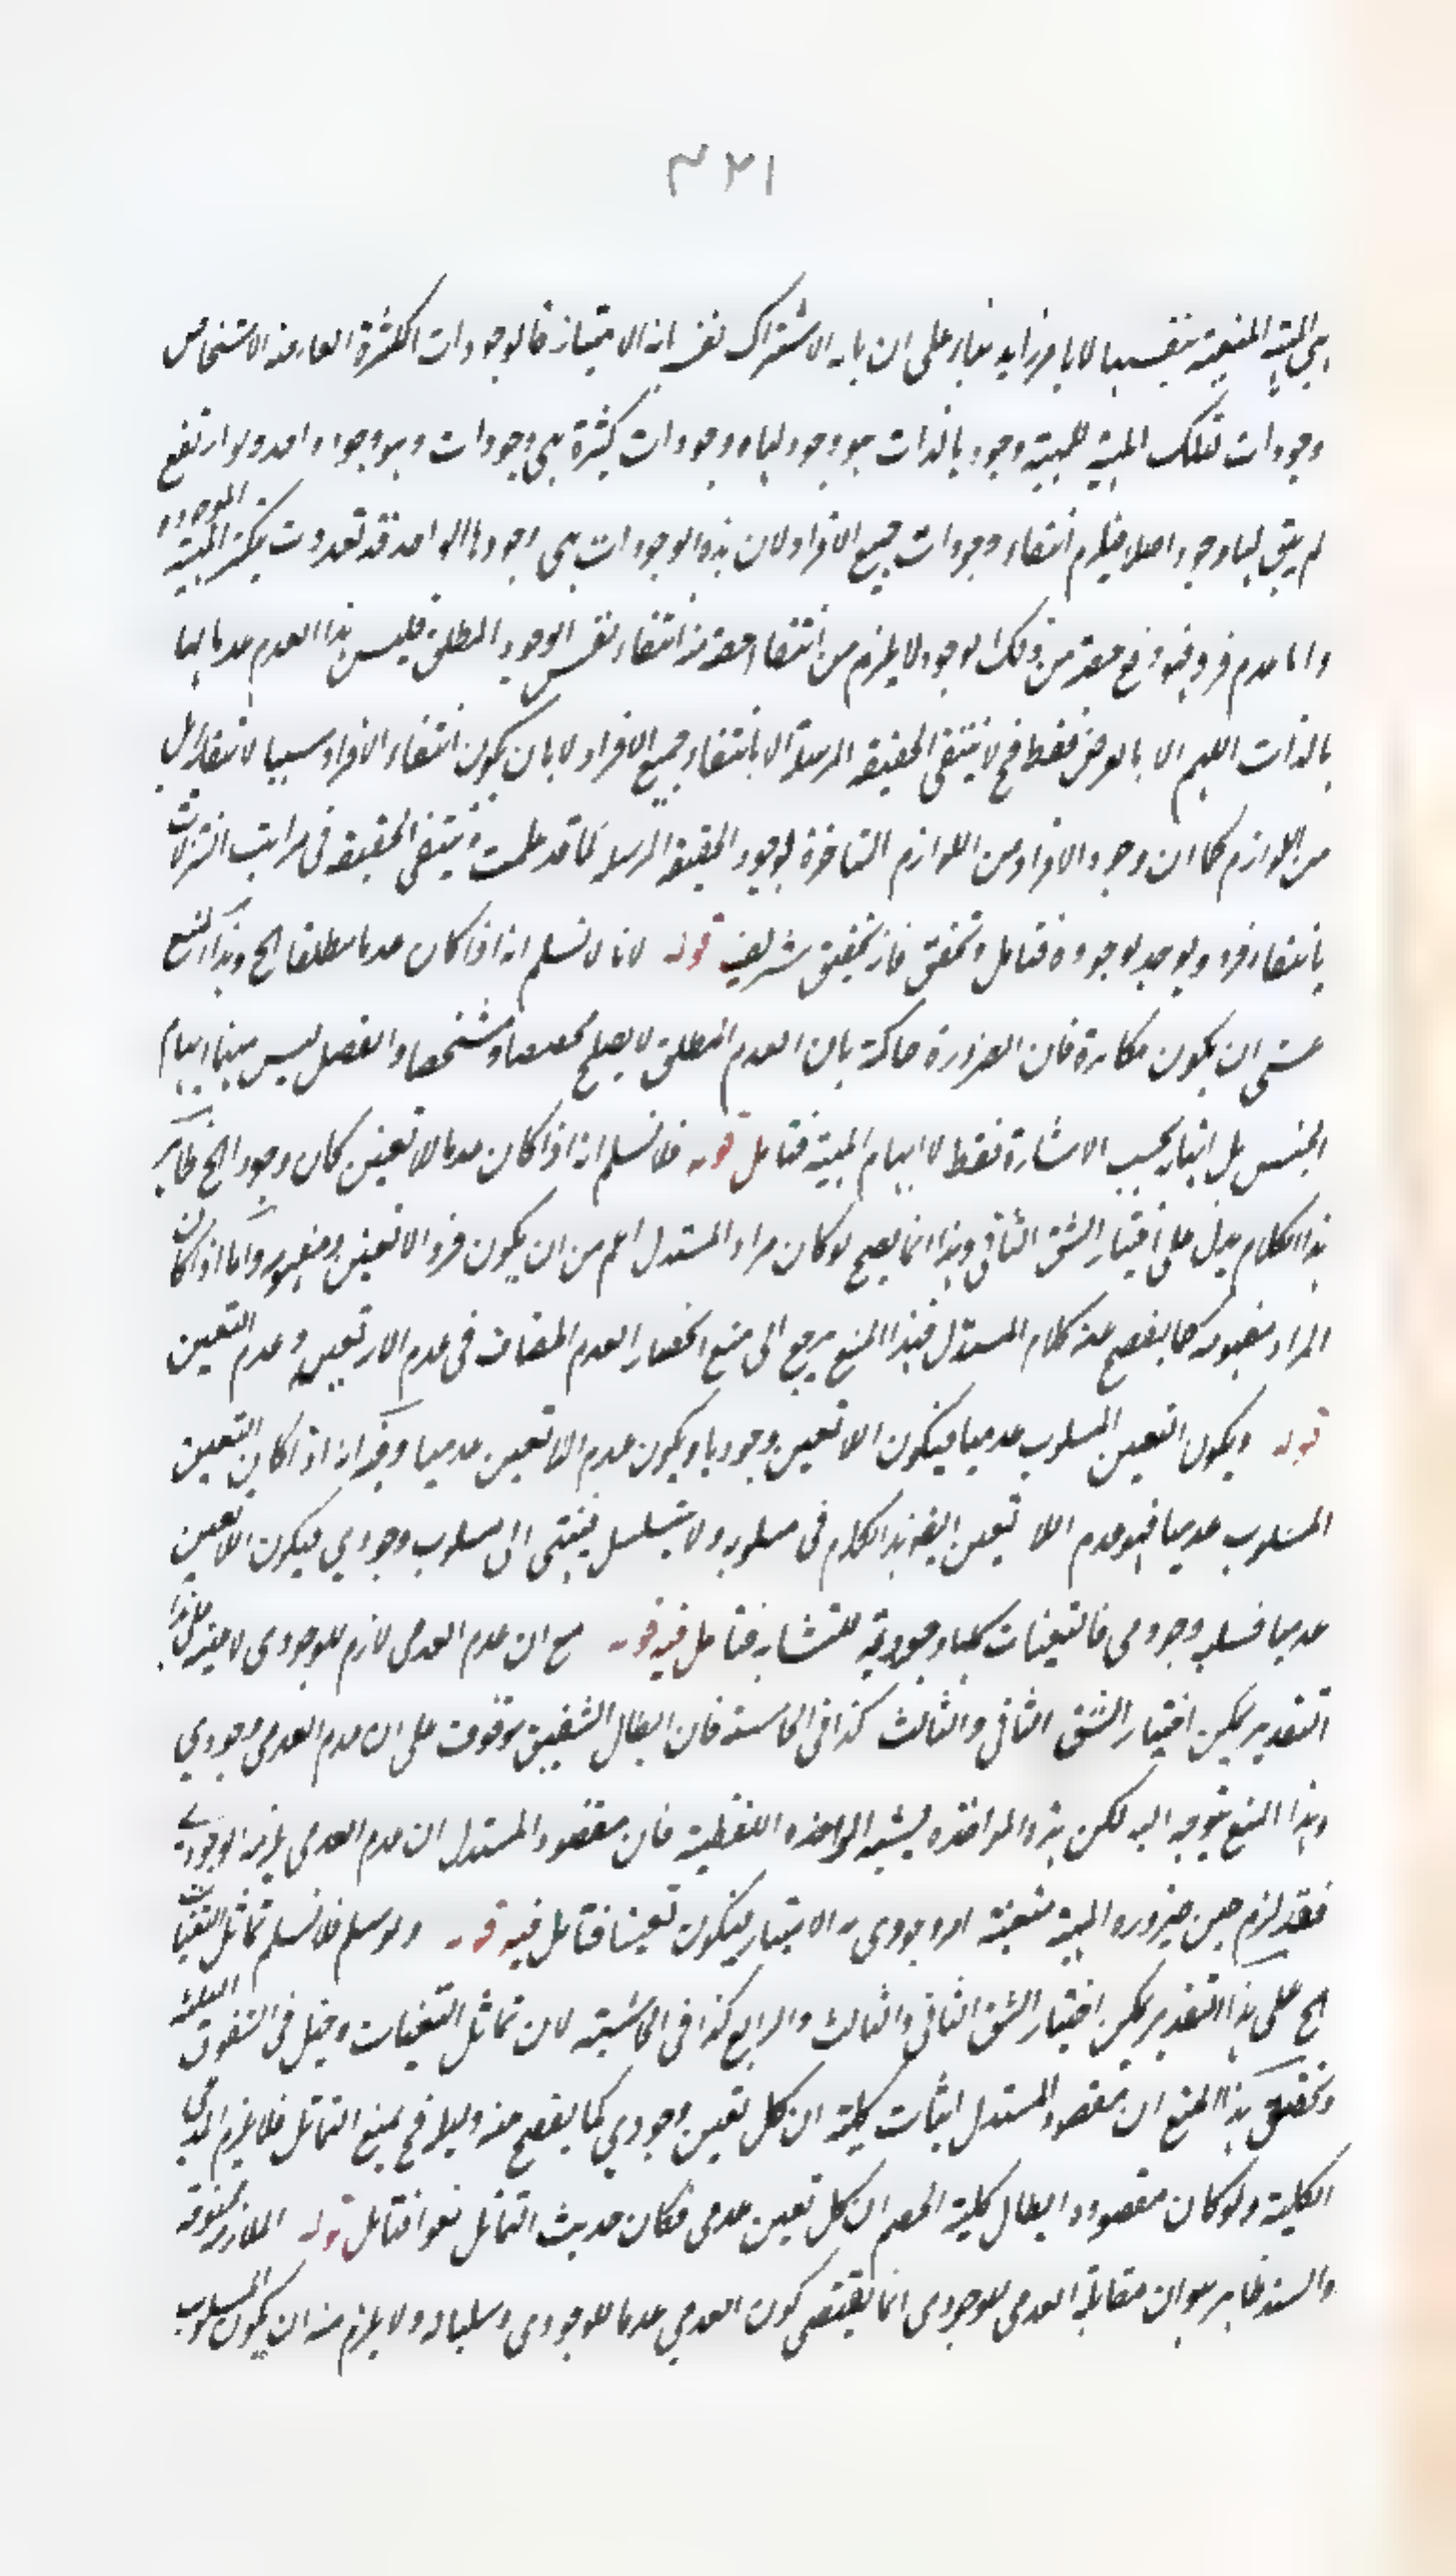 ٤٢١
هي المهية المتعينة بنفسها لا بامر زايد بناء على ان ما به الاشتراك نفس ما به الامتياز فالوجودات الكثيرة العارضة الاشخاص
وجودات لتلك المهية للمهية وجود بالذات هو وجود لها ووجودات كثيرة هي وجودات وهو وجود واحد ولو ارتفع
لم يبق لها وجود اصلا فيلزم انتفاء وجودات جميع الافراد لان هذه الوجودات هي وجودها الواحد قد تعددت بتكثر المهية الموجودة
واما عدم فرد فهو رفع حصة من ذلك الوجود لا يلزم من انتفاء حصة منه انتفاء نفس الوجود المطلق فليس هذا العدم عدما لها
بالذات اللهم الا بالعرض فقط فح لا ينتفى الحقيقة المرسلة الا بانتفاء جميع الافراد لا بان يكون انتفاء الافراد سببا لانتفائها بل
من اللوازم كما ان وجود الافراد من اللوازم المتاخرة لوجود الحقيقة المرسلة كما قد علمت وينتفى الحقيقة فى مراتب التنزلات
بانتفاء فرد ويوجد بوجوده فتامل وتحقق فانه تحقيق شريف قوله لانا لا نسلم انه اذا كان عدما مطلقا الخ وهذا المنع
عسى ان يكون مكابرة فان الضرورة حاكمة بان العدم المطلق لا يصلح مخصصا ومشخصا والفصل ليس مبنيا ابهام
الجنس بل انما بحسب الاشارة فقط لا ابهام المهية فتامل قوله فلا نسلم انه اذا كان عدما لا تعين كان وجودا الخ ظاهر
هذا الكلام يدل على اختيار الشق الثانى وهذا انما يصح لو كان مراد المستدل اعم من ان يكون فرد الاتعين ومفهومه واما اذا كان
المراد مفهومه كما يفصح عنه كلام المستدل فهذا المنع يرجع الى منع انحصار العدم المضاف فى عدم اللاتعين وعدم التعين
قوله ويكون التعين المسلوب عدميا فيكون اللاتعين وجوديا ويكون عدم اللاتعين عدميا وفيه انه اذا كان التعين
المسلوب عدميا فهو عدم اللا تعين ايضا هذا الكلام فى مسلوبه ولا يتسلسل فينتهى الى مسلوب وجودي فيكون اللاتعين
عدميا فسلبه وجودى فالتعينات كلها وجودية للتشابه فتامل فيه قوله مع ان عدم العدمى لازم للوجودى لا عينه على هذا
التقدير يمكن اختيار الشق الثانى والثالث كذا فى الحاشية فان ابطال الشقين موقوف على ان عدم العدمى وجودي
وهذا المنع يتوجه اليه لكن هذه المواخذة يشبه المواخذه اللفظية فان مقصود المستدل ان عدم العدمى يلزمه الوجودي
فقد لزم حين ضرورة المهية متعينة امر وجودى به الامتياز فيكون تعينا فتامل فيه قوله ولو سلم فلا نسلم تماثل التعينات
الخ على هذا التقدير يمكن اختيار الشق الثانى والثالث والرابع كذا فى الحاشية لان تماثل التعينات دخيل فى الشقوق الثلثة
وتحقيق هذا المنع ان مقصود المستدل اثبات كلية ان كل تعين وجودي كما يفصح عنه دليله فح يمنع التماثل فلا يلزم المدعى
الكلية ولو كان مقصوده ابطال كلية الخصم ان كل تعين عدمى فكان حديث التماثل لغوا فتامل قوله الملازمة ممنوعة
والسند ظاهر هو ان مقابلة العدمى للوجودى انما يقتضى كون العدمي عدما للوجودى وسلبا له ولا يلزم منه ان يكون المسلوب